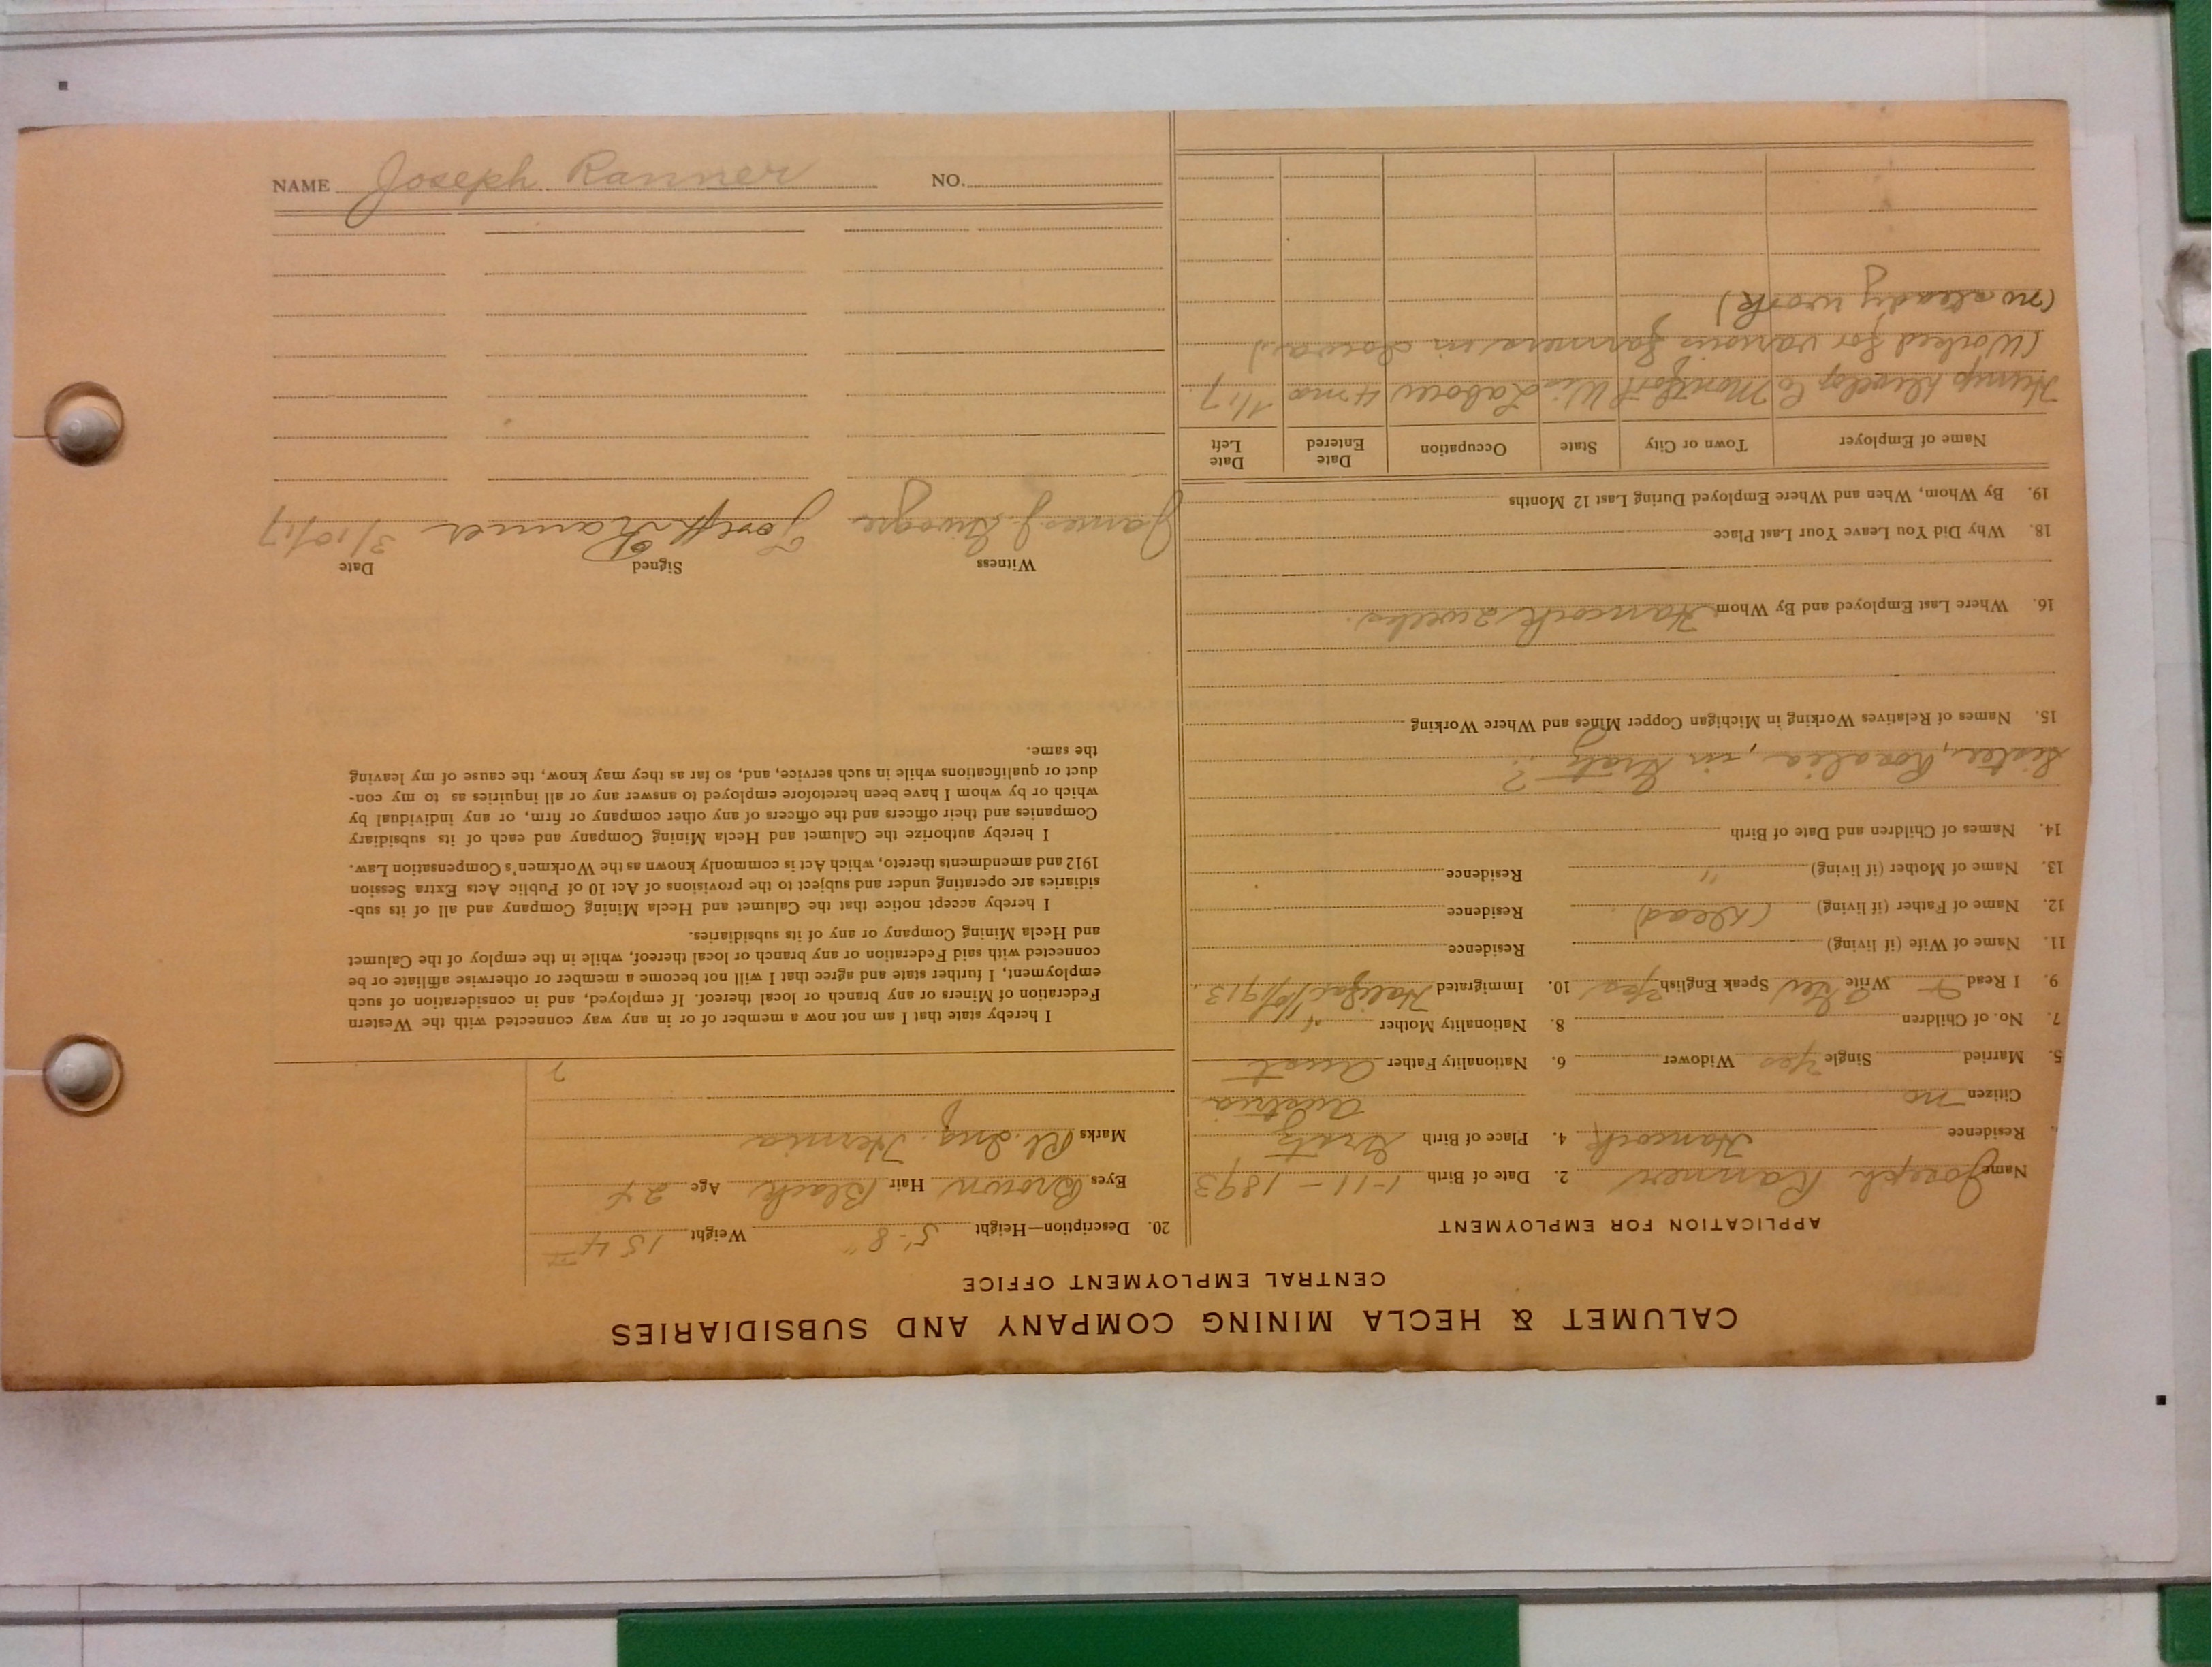 CALUMET & HECLA MINING COMPANY AND SUBSIDIARIES
CENTRAL EMPLOYMENT OFFICE
APPLICATION FOR EMPLOYMENT
Name Joseph Ranner 2. Date of Birth 1-11-1893
Residence Hancock 4. Place of Birth Gratz
Citizen no Austria
5. Married Single Yes Widower 6. Nationality Father Aust
7. No. of Children 8. Nationality Mother "
9. I Read Write Speak English Yes 10. Immigrated Halifax 10/1913.
11. Name of Wife (if living) Residence
12. Name of Father (if living) (Dead) Residence
13. Name of Mother (if living) " Residence
14. Names of Children and Date of Birth
Sister, Rosalia, in Gratz ?
15. Names of Relatives Working in Michigan Copper Mines and Where Working
16. Where Last Employed and By Whom Hancock 2 weeks.
18. Why Did You Leave Your Last Place
19. By Whom, When and Where Employed During Last 12 Months
Name of Employer Town or City State Occupation Date Entered Date Left
Co Montfort Wis Labour 4 mo 1/17
(Worked for various farmers in Iowa)
(no steady work)
20. Description—Height 5'-8" Weight 154
Eyes Brown Hair Black Age 24
Marks Rt. Ing. Hernia
?
I hereby state that I am not now a member of or in any way connected with the Western
Federation of Miners or any branch or local thereof. If employed, and in consideration of such
employment, I further state and agree that I will not become a member or otherwise affiliate or be
connected with said Federation or any branch or local thereof, while in the employ of the Calumet
and Hecla Mining Company or any of its subsidiaries.
I hereby accept notice that the Calumet and Hecla Mining Company and all of its sub-
sidiaries are operating under and subject to the provisions of Act 10 of Public Acts Extra Session
1912 and amendments thereto, which Act is commonly known as the Workmen's Compensation Law.
I hereby authorize the Calumet and Hecla Mining Company and each of its subsidiary
Companies and their officers and the officers of any other company or firm, or any individual by
which or by whom I have been heretofore employed to answer any or all inquiries as to my con-
duct or qualifications while in such service, and, so far as they may know, the cause of my leaving
the same.
Witness Signed Date
James J. Joseph Ranner 3/10/17
NAME Joseph Ranner NO.